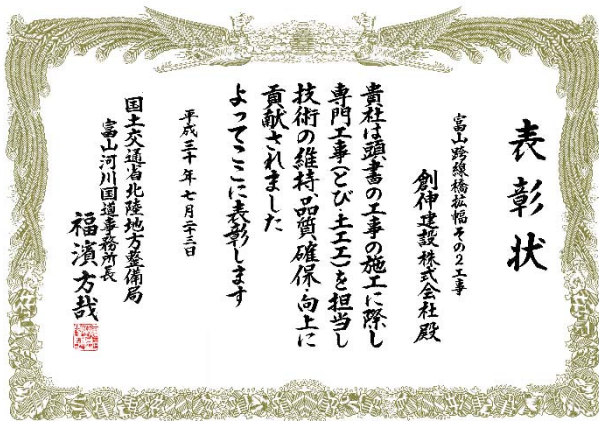 表彰状
富山跨線橋拡幅その2工事
創伸建設株式会社殿
貴社は頭書の工事の施工に際し
専門工事(とび・土工工)を担当し
技術の維持、品質、確保・向上に
貢献されました
よってここに表彰します
平成三十年七月二十三日
国土交通省北陸地方整備局
富山河川国道事務所長
福濱方哉